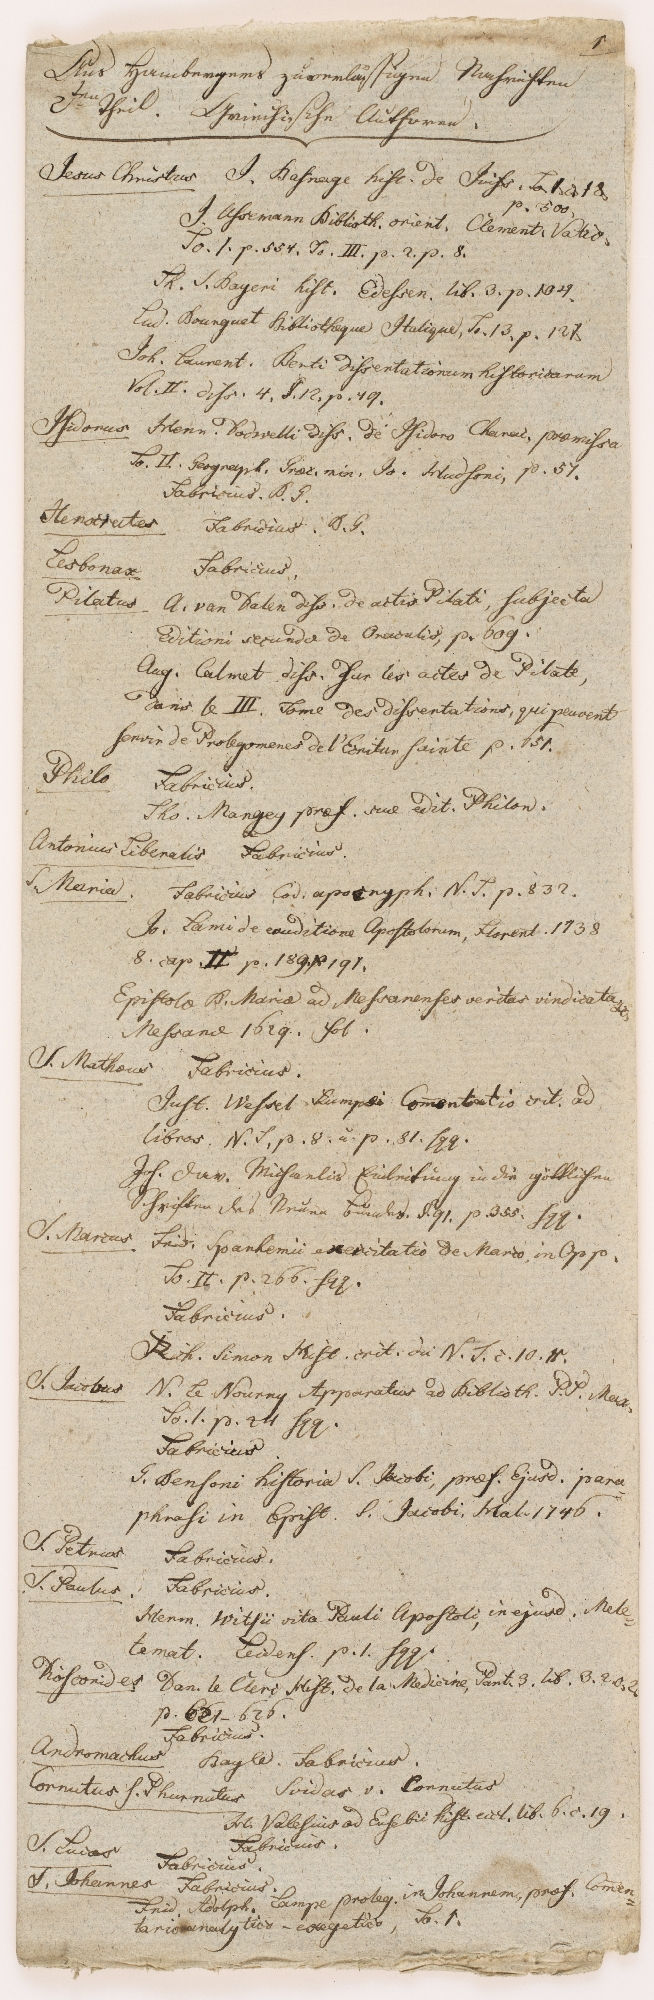 1
Aus Hambergers zuverlässigen Nachrichten
2ten Theil. Griechische Authoren.
Jesus Christus J. Basnage hist. de Juifs. To. 1. c. 18
p. 500.
J. Assemann Biblioth. orient. Clement. Vatic.
To. 1. p. 554. To. III. p. 2. p. 8.
Th. S. Bayeri hist. Edessen. lib. 3. p. 104.
Lud. Bourguet Bibliotheque Italique, To. 13. p. 127
Joh. Laurent. Berti dissertationum historicarum
Vol. II. diss. 4. §. 12. p. 49.
Isidorus Henr. Dodwelli diss. de Isidoro Charac. præmissa
To. II. Geograph. Græc. min. Jo. Hudsoni, p. 57.
Fabricius. B. G.
Xenocrates Fabricius. B. G.
Lesbonax Fabricius.
Pilatus A. van Dalen diss. de actis Pilati, subjecta
Editioni secundæ de Oraculis, p. 609.
Aug. Calmet diss. sur les actes de Pilate,
dans le III. Tome des dissertations, qui peuvent
servir de Prolegomenes de l'Ecriture sainte p. 651.
Philo Fabricius.
Tho. Mangey præf. suæ edit. Philon.
Antonius Liberalis Fabricius.
S. Maria. Fabricius Cod. apocryph. N. T. p. 832.
Jo. Lami de eruditione Apostolorum, Florent. 1738
8. cap. II p. 189. 197.
Epistolæ B. Mariæ ad Messanenses veritas vindicata
Messanæ 1629. fol.
S. Mathæus Fabricius.
Just. Wessel Rumpæi Comentatio crit. ad
libros N. T. p. 8. u. p. 81. sqq.
Joh. Dav. Michaelis Einleitung in die göttlichen
Schriften des Neuen Bundes. §. 91. p. 355. sqq.
S. Marcus Frid. Spanhemii exercitatio de Marco, in Opp.
To. II. p. 266. sqq.
Fabricius.
Rich. Simon Hist. crit. du N. T. c. 10. 11.
S. Jacobus N. Le Nourry Apparatus ad Biblioth. P.P. Max.
To. 1. p. 24 sqq.
Fabricius
G. Bensoni historia S. Jacobi, præf. Ejusd. para-
phrasi in Epist. S. Jacobi. Hal. 1746.
S. Petrus Fabricius.
S. Paulus. Fabricius.
Herm. Witsii vita Pauli Apostoli, in ejusd. Mele-
temat. Leidens. p. 1. sqq.
Dioscorides Dan. le Clerc Hist. de la Medicine, Part. 3. lib. 3. 2. c. 2
p. 621-626.
Fabricius.
Andromachus Bayle. Fabricius.
Cornutus s. Phurnutus Svidas v. Cornutus
Hr. Valesius ad Eusebii hist. eccl. lib. 6. c. 19.
Fabricius.
S. Lucas Fabricius.
S. Johannes Fabricius.
Frid. Adolph. Lampe proleg. in Johannem, præf. Comen-
tario analytico-exegetico, To. 1.